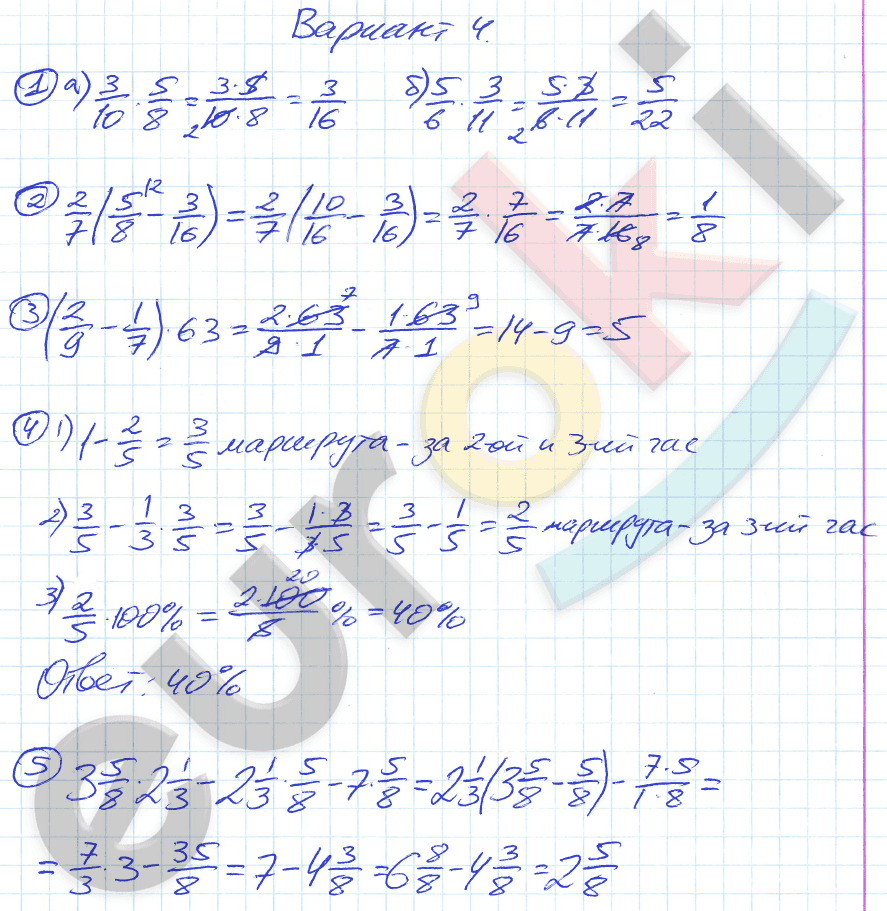 Вариант 4.
① а) 3/10 · 5/8 = 3·5/10·8 2 = 3/16 б) 5/6 · 3/11 = 5·3/6·11 2 = 5/22
② 2/7 (5/8 \2 − 3/16) = 2/7 (10/16 − 3/16) = 2/7 · 7/16 = 2·7/7·16 8 = 1/8
③ (2/9 − 1/7) · 63 = 2·63 7/9·1 − 1·63 9/7·1 = 14 − 9 = 5
④ 1) 1 − 2/5 = 3/5 маршрута – за 2-ой и 3-ий час
2) 3/5 − 1/3 · 3/5 = 3/5 − 1·3/3·5 = 3/5 − 1/5 = 2/5 маршрута – за 3-ий час
3) 2/5 · 100% = 2·100 20/5 % = 40%
Ответ: 40%
⑤ 3 5/8 · 2 1/3 − 2 1/3 · 5/8 − 7 · 5/8 = 2 1/3 (3 5/8 − 5/8) − 7·5/1·8 =
= 7/3 · 3 − 35/8 = 7 − 4 3/8 = 6 8/8 − 4 3/8 = 2 5/8
euroki